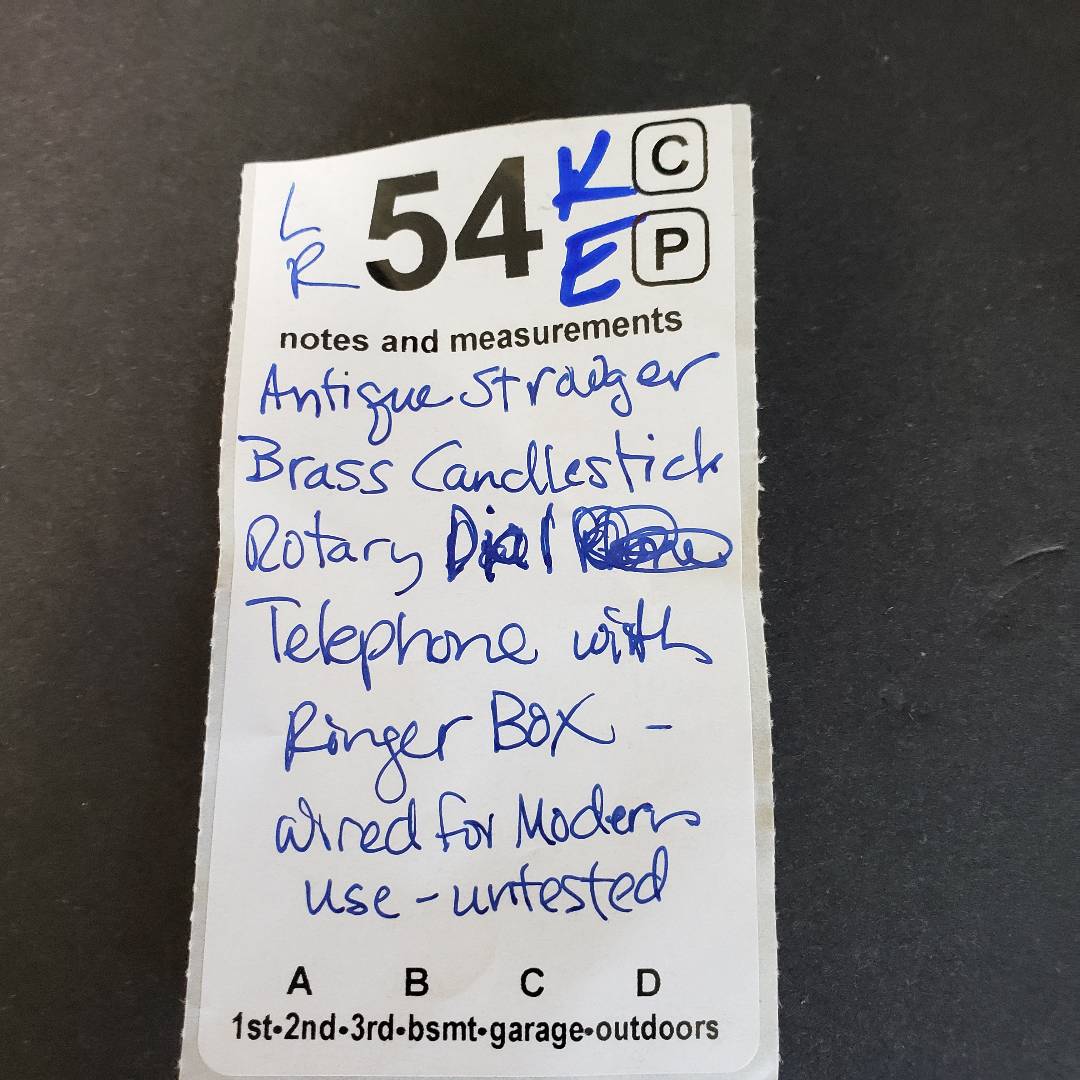 L 54 K C
R E P
notes and measurements
Antique Strowger
Brass Candlestick
Rotary Dial
Telephone with
Ringer Box -
wired for Modern
use - untested
A B C D
1st•2nd•3rd•bsmt•garage•outdoors